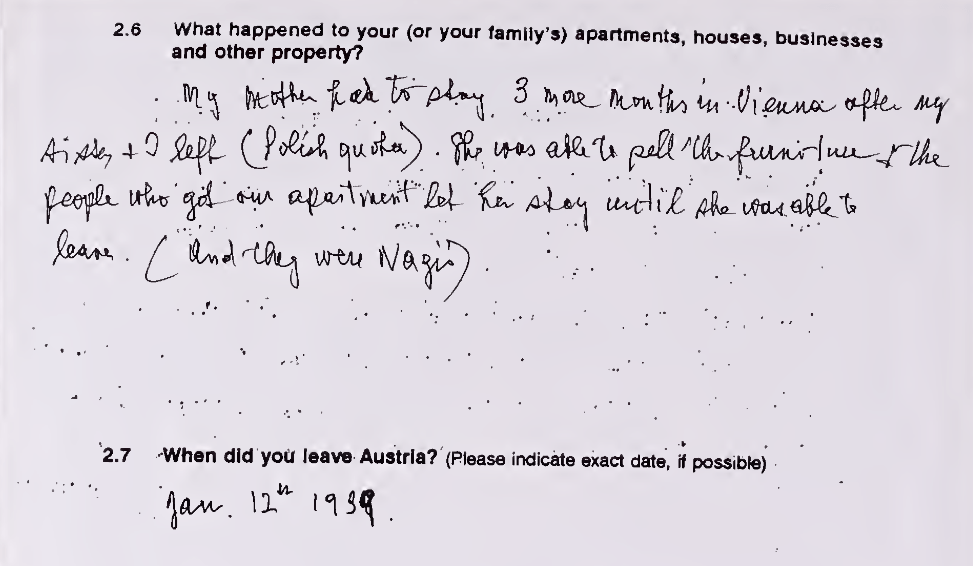 2.6 What happened to your (or your family's) apartments, houses, businesses
and other property?
My mother had to stay 3 more months in Vienna after my
sister + I left (Polish quota). She was able to sell the furniture & the
people who got our apartment let her stay until she was able to
leave. (And they were Nazis).
2.7 When did you leave Austria? (Please indicate exact date, if possible)
Jan. 12th 1939.